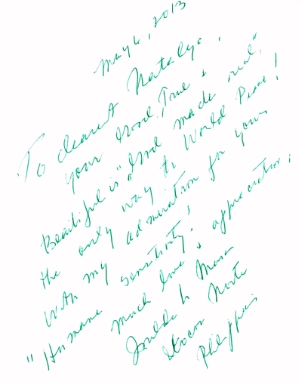 May 6, 2013
To dearest Natalya,
your Good, True &
Beautiful is "God made real",
the only way to World Peace!
With my admiration for your
"Humane sensitivity".
Much love & appreciation,
Norte